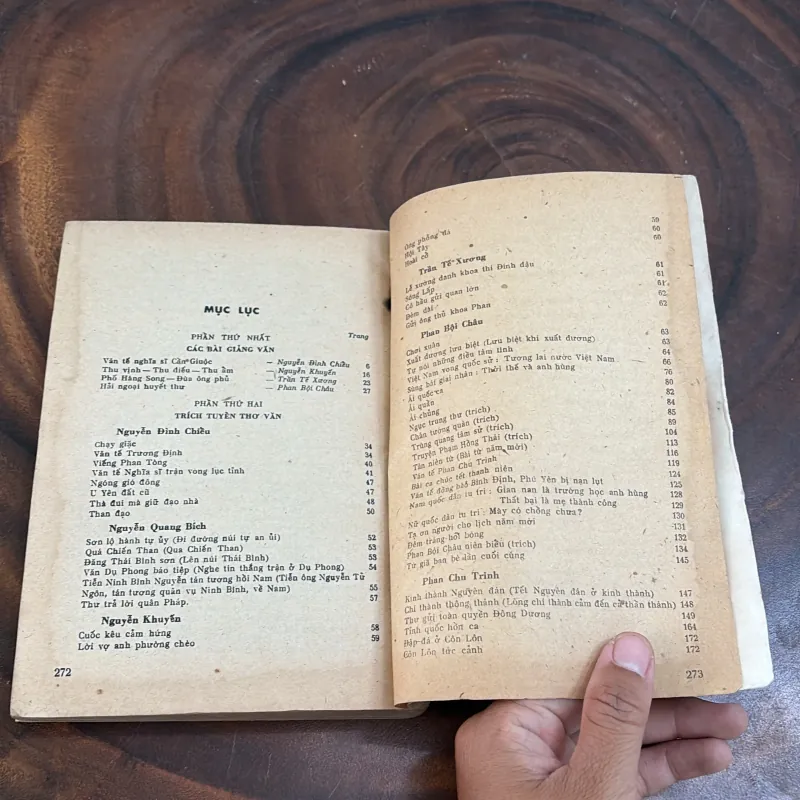 MỤC LỤC
PHẦN THỨ NHẤT Trang
CÁC BÀI GIẢNG VĂN
Văn tế nghĩa sĩ Cần Giuộc — Nguyễn Đình Chiểu 6
Thu vịnh — Thu điếu — Thu ẩm — Nguyễn Khuyến 16
Phố Hàng Song — Đùa ông phủ — Trần Tế Xương 23
Hải ngoại huyết thư — Phan Bội Châu 27
PHẦN THỨ HAI
TRÍCH TUYỂN THƠ VĂN
Nguyễn Đình Chiểu
Chạy giặc 34
Văn tế Trương Định 34
Viếng Phan Tòng 40
Văn tế Nghĩa sĩ trận vong lục tỉnh 41
Ngóng gió đông 47
U Yên đất cũ 47
Thà đui mà giữ đạo nhà 48
Than đạo 50
Nguyễn Quang Bích
Sơn lộ hành tự ủy (Đi đường núi tự an ủi) 52
Quá Chiến Than (Qua Chiến Than) 53
Đăng Thái Bình sơn (Lên núi Thái Bình) 53
Văn Dụ Phong báo tiệp (Nghe tin thắng trận ở Dụ Phong) 54
Tiễn Ninh Bình Nguyễn tán tương hồi Nam (Tiễn ông Nguyễn Tử
Ngôn, tán tương quân vụ Ninh Bình, về Nam) 55
Thư trả lời quân Pháp. 57
Nguyễn Khuyến
Cuốc kêu cảm hứng 58
Lời vợ anh phường chèo 59
272
Ông phỗng đá 59
Hội Tây 60
Hoài cổ 60
Trần Tế Xương
Lễ xướng danh khoa thi Đinh dậu 61
Sông Lấp 61
Cô hầu gửi quan lớn 61
Đêm dài 62
Gửi ông thủ khoa Phan 62
Phan Bội Châu
Chơi xuân 63
Xuất dương lưu biệt (Lưu biệt khi xuất dương) 63
Tự nói những điều tâm tình 64
Việt Nam vong quốc sử : Tương lai nước Việt Nam 66
Sùng bái giai nhân : Thời thế và anh hùng 76
Ái quốc ca 80
Ái quần 82
Ái chủng 84
Ngục trung thư (trích) 85
Chân tướng quân (trích) 89
Trùng quang tâm sử (trích) 104
Truyện Phạm Hồng Thái (trích) 113
Tân niên từ (Bài từ năm mới) 116
Văn tế Phan Chu Trinh 119
Bài ca chúc tết thanh niên 124
Văn tế đồng bào Bình Định, Phú Yên bị nạn lụt 125
Nam quốc dân tu tri : Gian nan là trường học anh hùng 128
Thất bại là mẹ thành công 129
Nữ quốc dân tu tri : Mày có chồng chưa? 130
Tạ ơn người cho lịch năm mới 131
Đêm trăng hỏi bóng 132
Phan Bội Châu niên biểu (trích) 134
Từ giã bạn bè lần cuối cùng 145
Phan Chu Trinh
Kinh thành Nguyên đán (Tết Nguyên đán ở kinh thành) 147
Chí thành thông thánh (Lòng chí thành cảm đến cả thần thánh) 148
Thư gửi toàn quyền Đông Dương 149
Tỉnh quốc hồn ca 164
Đập đá ở Côn Lôn 172
Côn Lôn tức cảnh 172
273